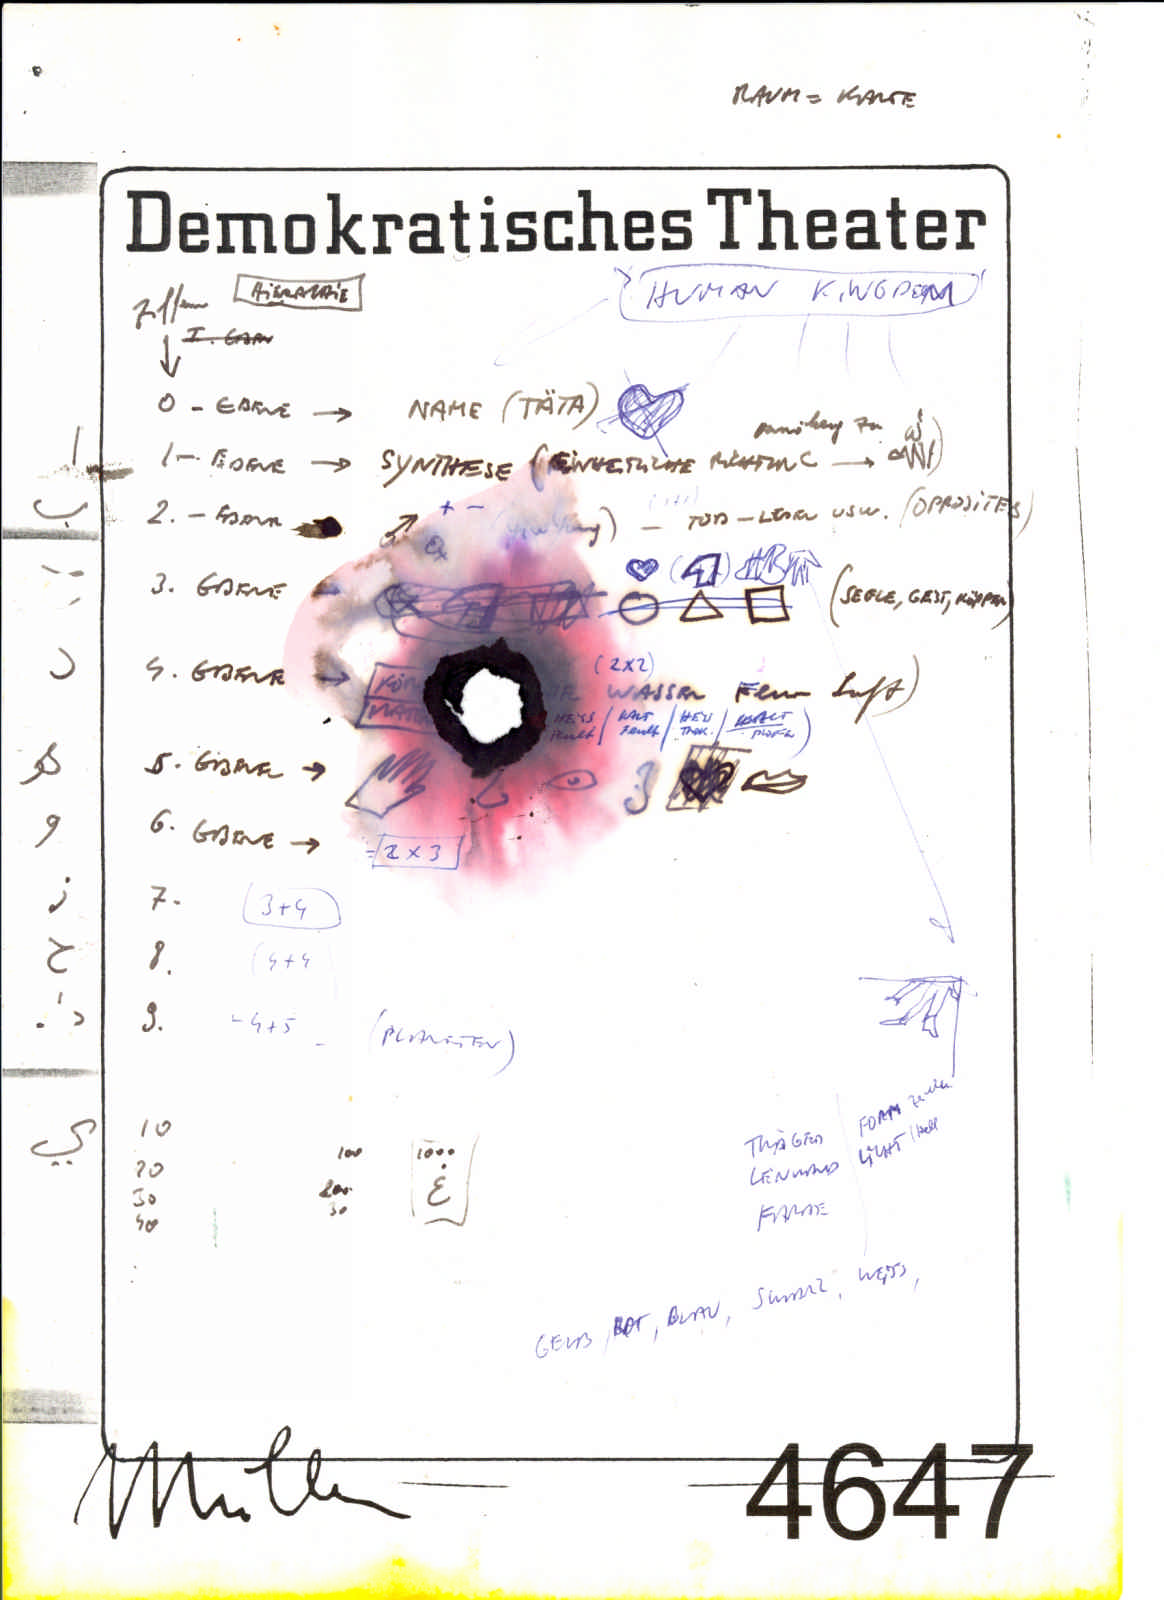 RAUM = KARTE
Demokratisches Theater
Ziffern HIERARCHIE
HUMAN KINGDOM
0 - EBENE → NAME (TÄTA)
ا 1 - EBENE → SYNTHESE (EINHEITLICHE RICHTUNG →
ب 2. - EBENE + - - TOD - LEBEN USW. (OPPOSITES)
3. EBENE (SEELE, GEIST, KÖRPER)
(2x2)
د 4. EBENE → WASSER Feuer Luft)
HEISS / KALT / HEISS /
ه 5. EBENE →
و 6. EBENE → = 2 x 3
ز 7. 3+4
ح 8. (4+4
9. - 4+5 (PLANETEN)
ي 10
20 100 1000
30 200 غ
40 30
TRÄGER FORM
LEINWAND LICHT / Hell
FARBE
GELB, ROT, BLAU, SCHWARZ, WEISS,
Müller
4647